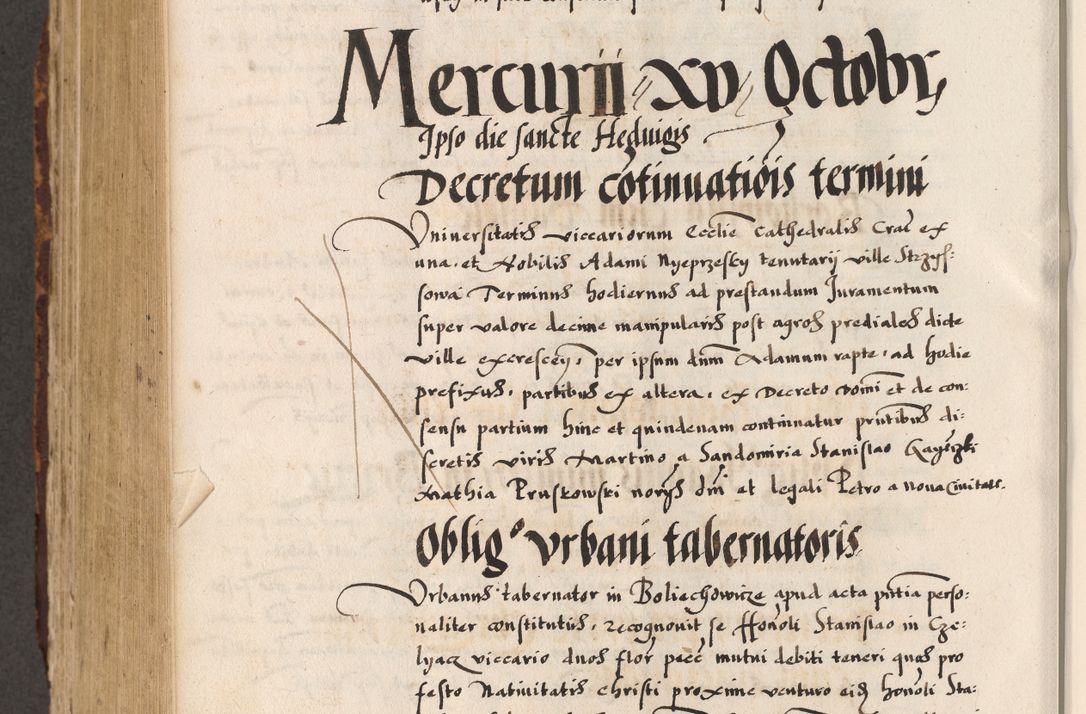 Mercurii xv Octobr
Ipso die sancte Heduigis
Decretum cōtinuatiōis termini
Vniuersitatis viccariorum Ecclie Cathedralis Crac̄ ex
una et Nobilis Adami Nyeprzesky tenutarij ville Strzys-
sowa Terminus hodiernus ad prestandum Juramentum
super valore decime manipularis post agros prediales dicte
ville excrescen̄ per ipsum dnm̄ Adamum rapte, ad hodie
prefixus, partibus ex altera, ex Decreto domī et de con:
sensu partium hinc et quindenam continuatur pn̄tibus di:
scretis viris Martino a Sandomiria Stanislao
Mathia Pruskowski dnī et legali Petro a noua Ciuitate.
Oblig° vrbani tabernatoris
Vrbanus tabernator in Boliechowicze apud acta pn̄tia perso:
naliter constitutus, recognouit se Honōli Stanislao in Cze:
lyacz viccario duos flor̄ pecc̄ mutui debiti teneri quos pro
festo Natiuitatis christi proxime venturo eid̄ honōli Sta: